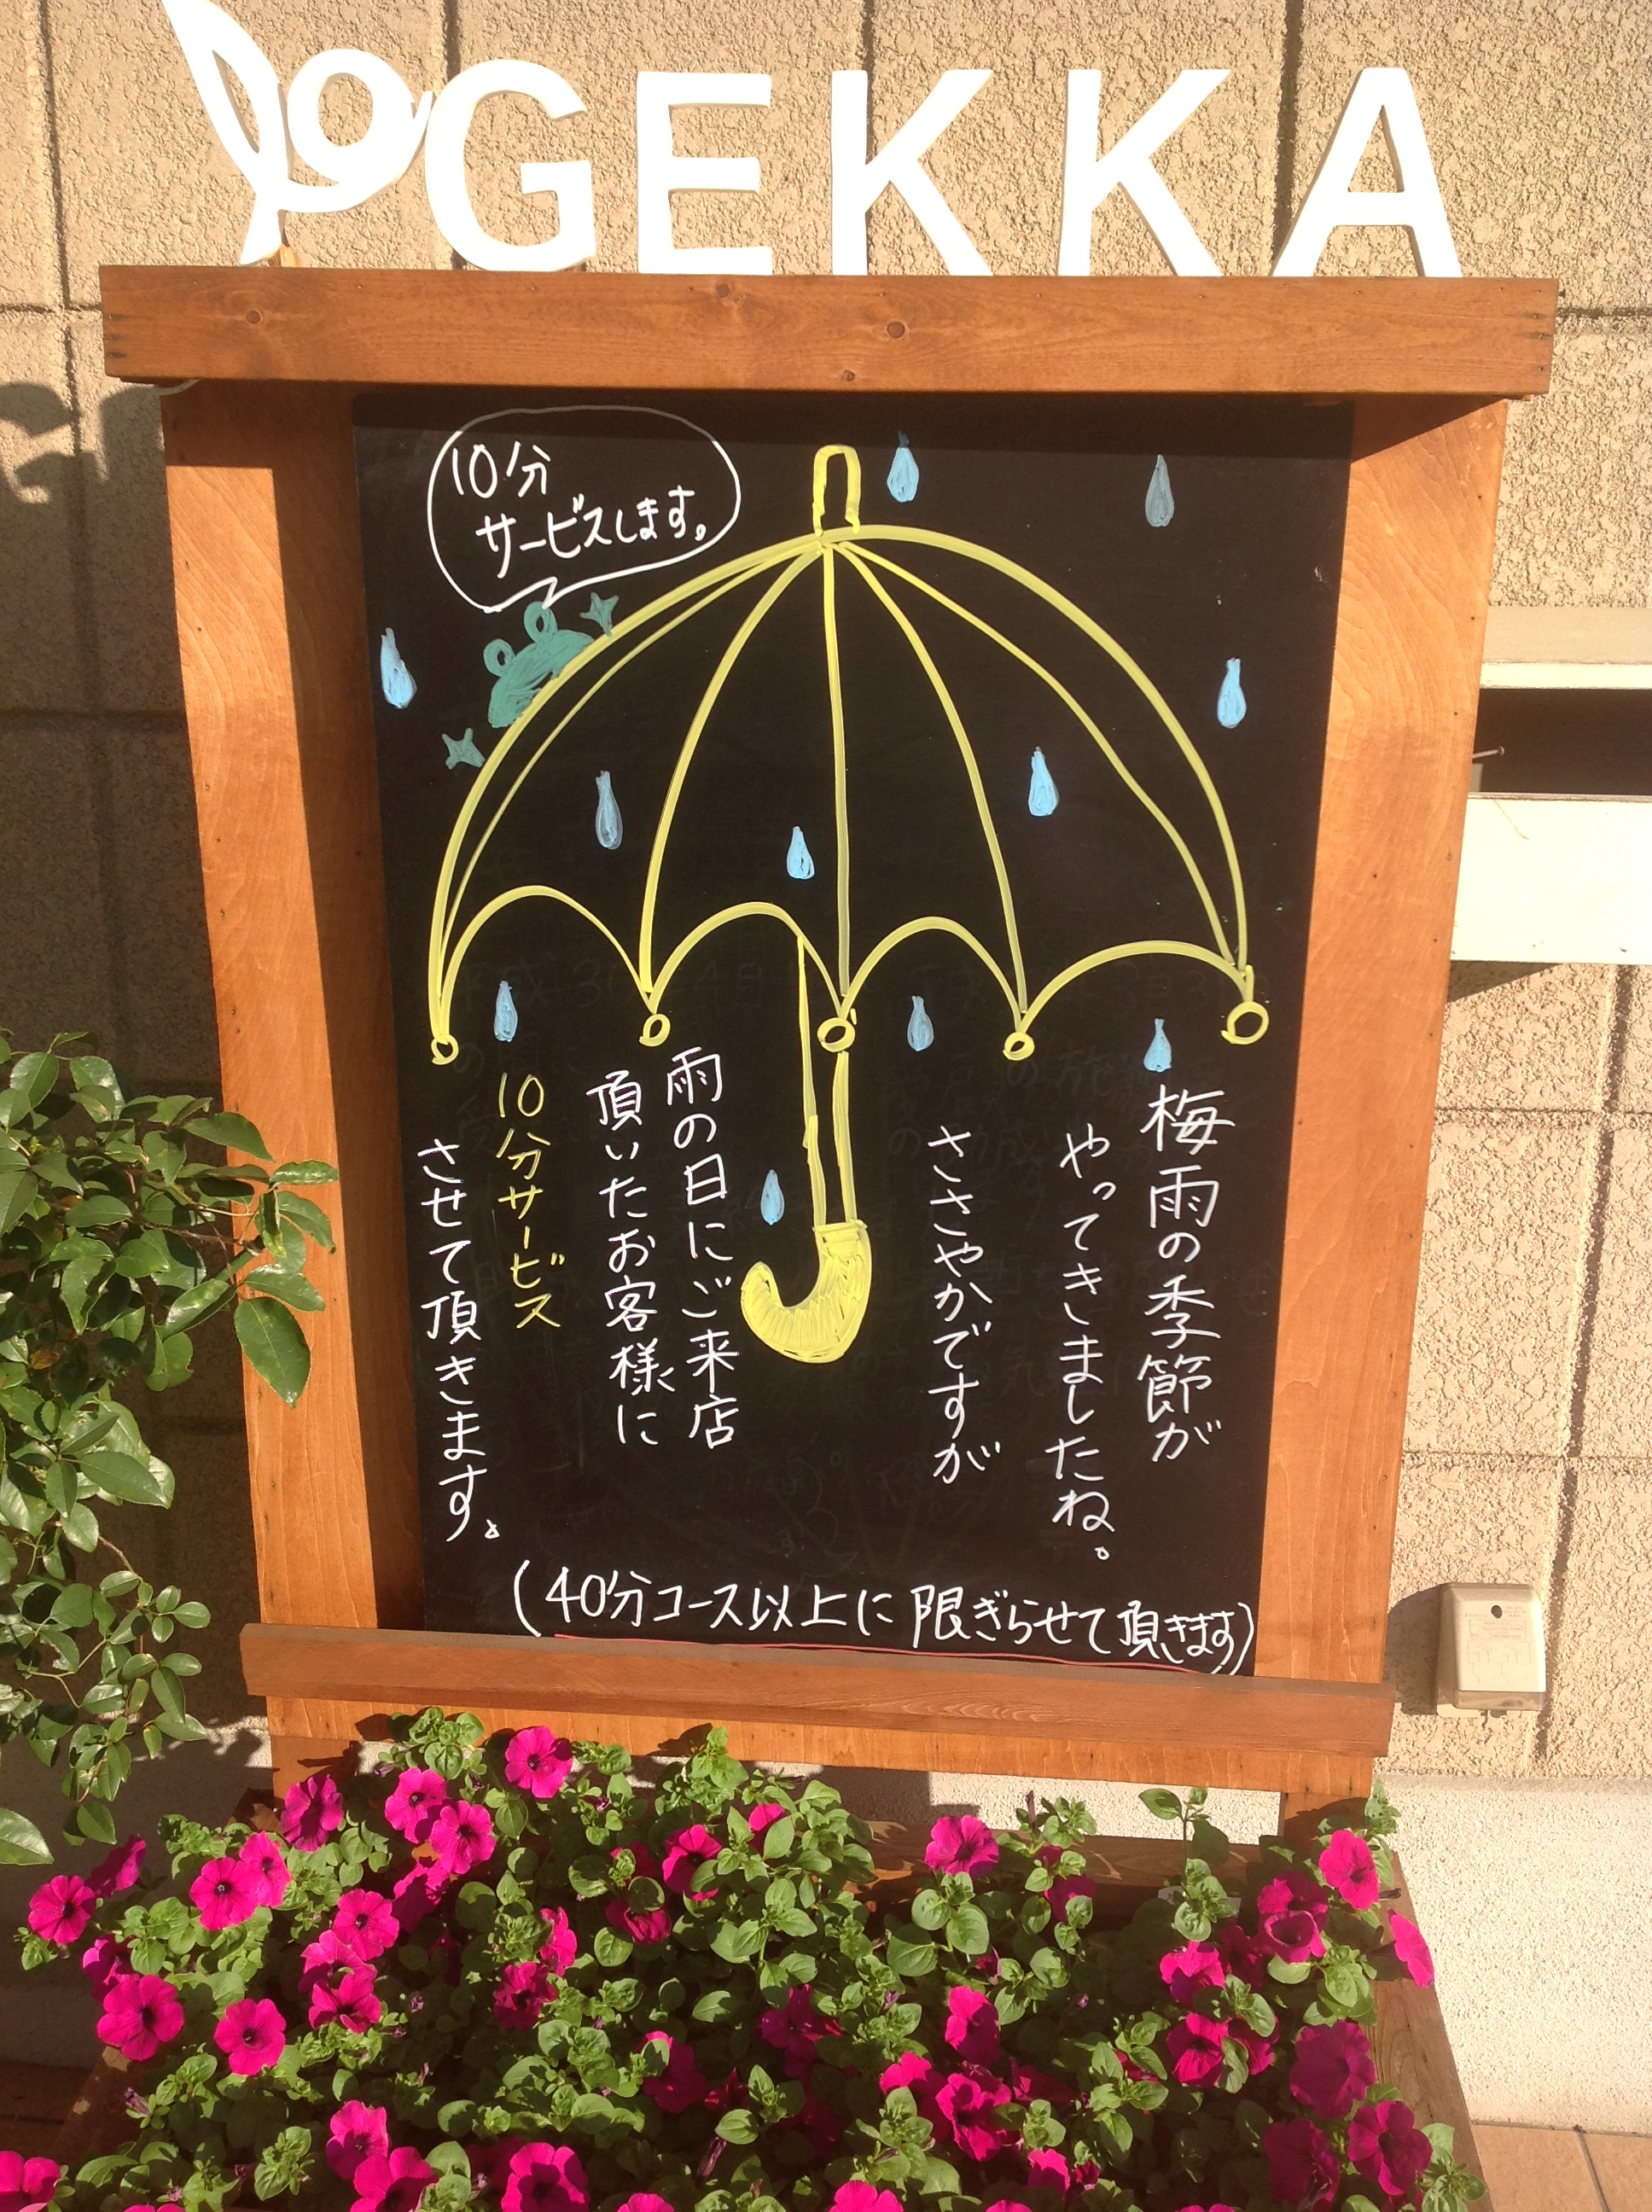 GEKKA
10分
サービスします。
梅雨の季節が
やってきましたね。
ささやかですが
雨の日にご来店
頂いたお客様に
10分サービス
させて頂きます。
(40分コース以上に限ぎらせて頂きます)